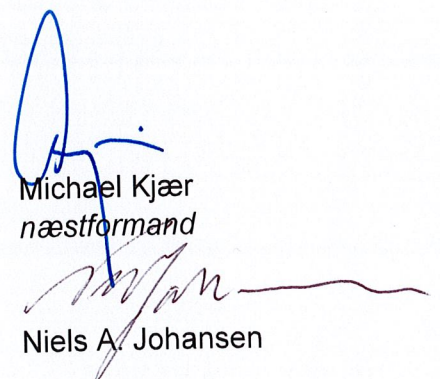 Michael Kjær
næstformand
Niels A. Johansen